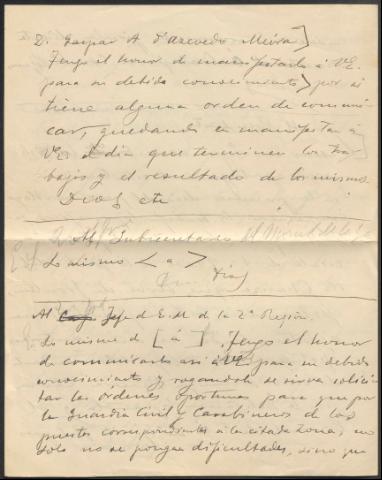 D. Gaspar A. d'azevedo Meira]
Tengo el honor de manifestarlo á VE.
para su debido conocimiento> por si
tiene alguna orden de comuni-
car, quedando en manifestar á
VE. el dia que terminen los tra-
bajos y el resultado de los mismos.
Dios etc
Al Subsecretario
Lo mismo < a >
Al Jefe d E. M. de la 2ª Región.
Lo mismo de [ á ] Tengo el honor
de comunicarlo así á VE para su debido
conocimiento y rogandole se sirva solici-
tar las órdenes oportunas para que por
la Guardia Civil y Carabineros de los
puestos correspondientes á la citada zona, no
solo no se pongan dificultades, sino que